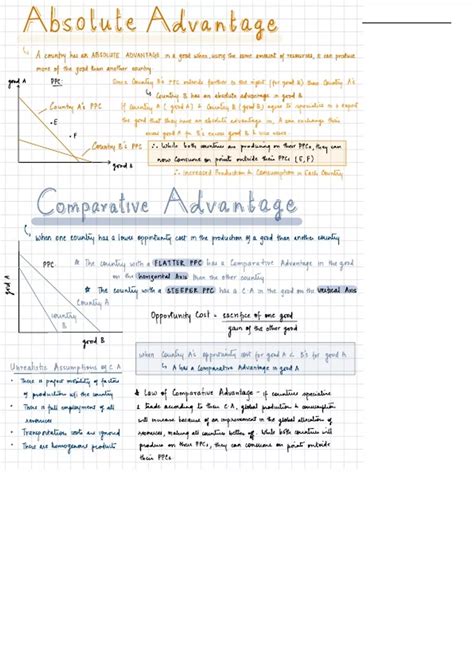 Absolute Advantage
A country has an ABSOLUTE ADVANTAGE in a good when, using the same amount of resources, it can produce
more of the good than another country
good A
PPC
Since Country B's PPC extends further to the right (for good B) than Country A's
Country B has an absolute advantage in good B
Country A's PPC
If Country A (good A) & Country B (good B) agree to specialise & export
the good that they have an absolute advantage in, A can exchange their
• E
• F
excess good A for B's excess good B & vice versa
Country B's PPC
∴ While both countries are producing on their PPCs, they can
now consume on points outside their PPCs (E, F)
good B
∴ increased Production & Consumption in Each Country
Comparative Advantage
When one country has a lower opportunity cost in the production of a good than another country
good A
PPC
The country with a FLATTER PPC has a Comparative Advantage in the good
on the horizontal Axis than the other country
The country with a STEEPER PPC has a C.A in the good on the Vertical Axis
Country A
country B
Opportunity Cost = sacrifice of one good
gain of the other good
good B
Unrealistic Assumptions of C.A
When Country A's opportunity cost for good A < B's for good A
A has a Comparative Advantage in good A
• There is perfect mobility of factors
of production w/i the country
• There is full employment of all
resources
• Transportation costs are ignored
• There are homogenous products
Law of Comparative Advantage - if countries specialise
& trade according to their C.A, global production & consumption
will increase because of an improvement in the global allocation of
resources, making all countries better off. While both countries will
produce on their PPCs, they can consume on points outside
their PPCs